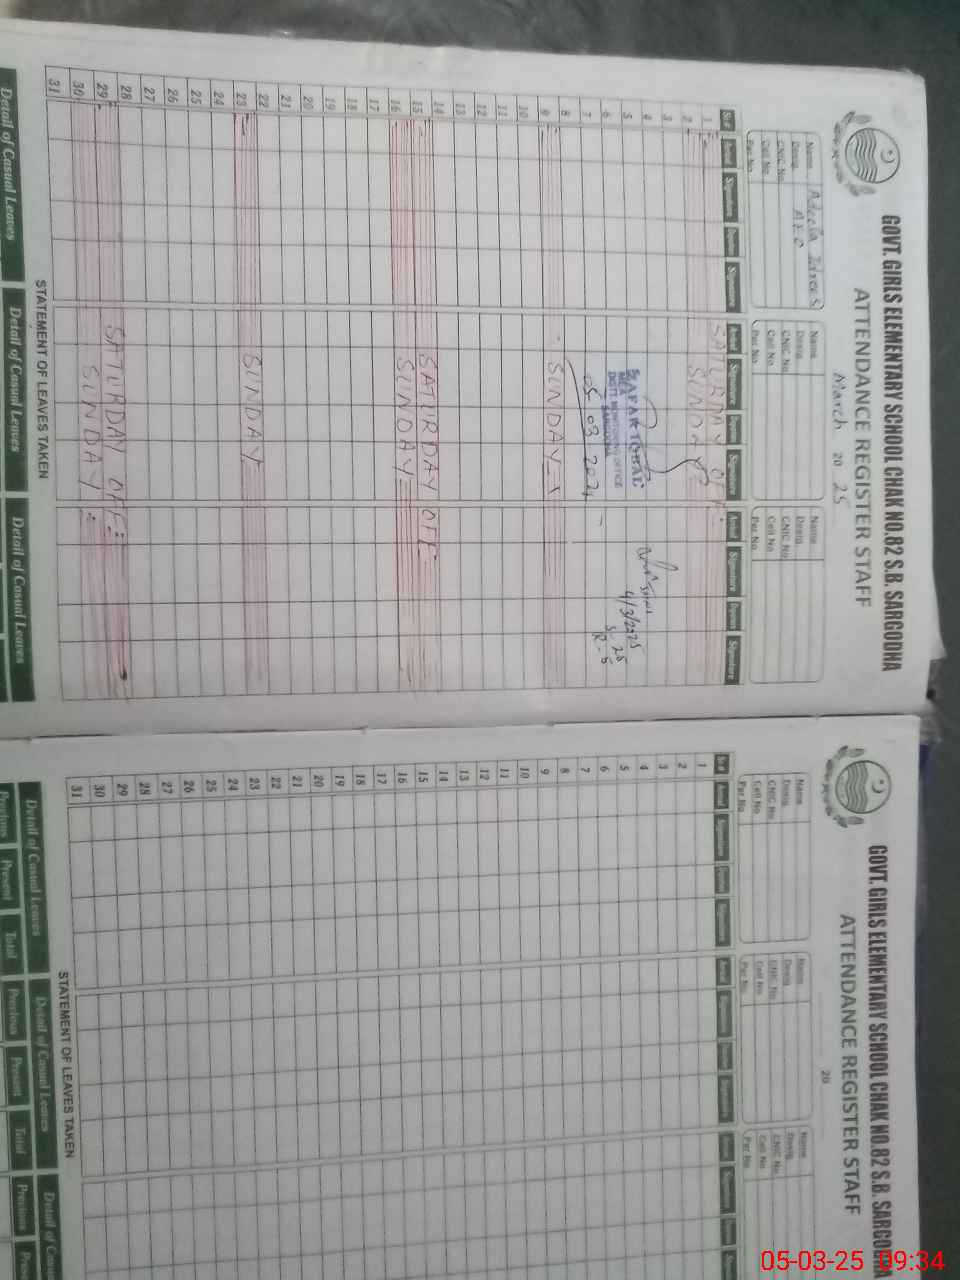 GOVT. GIRLS ELEMENTARY SCHOOL CHAK NO.82 S.B. SARGODHA
ATTENDANCE REGISTER STAFF
March 20 25
Name Adeela Idrees
Desig. AEO
CNIC No.
Cell No
Per No
Name
Desig.
CNIC No
Cell No
Per No
Name
Desig.
CNIC No
Cell No
Per No
Sr# Arrival Signature Departure Signature Arrival Signature Departure Signature Arrival Signature Departure Signature
1 SATURDAY OFF
2 SUNDAY
3
4
5
6
7
8
9 SUNDAY
10
11
12
13
14
15 SATURDAY OFF
16 SUNDAY
17
18
19
20
21
22
23 SUNDAY
24
25
26
27
28
29 SATURDAY OFF
30 SUNDAY
31
ZAFAR IQBAL
MEA
DISTT. MONITORING OFFICE
SARGODHA
05.03.2024
4/3/2025
S-25
R-5
STATEMENT OF LEAVES TAKEN
Detail of Casual Leaves
Detail of Casual Leaves
Detail of Casual Leaves
GOVT. GIRLS ELEMENTARY SCHOOL CHAK NO.82 S.B. SARGODHA
ATTENDANCE REGISTER STAFF
20
Name
Desig.
CNIC No.
Cell No
Per No
Name
Desig.
CNIC No
Cell No
Per No
Name
Desig.
CNIC No
Cell No
Per No
Sr# Arrival Signature Departure Signature Arrival Signature Departure Signature Arrival Signature
1
2
3
4
5
6
7
8
9
10
11
12
13
14
15
16
17
18
19
20
21
22
23
24
25
26
27
28
29
30
31
STATEMENT OF LEAVES TAKEN
Detail of Casual Leaves
Detail of Casual Leaves
Detail of
Previous Present Total Previous Present Total Previous
05-03-25 09:34